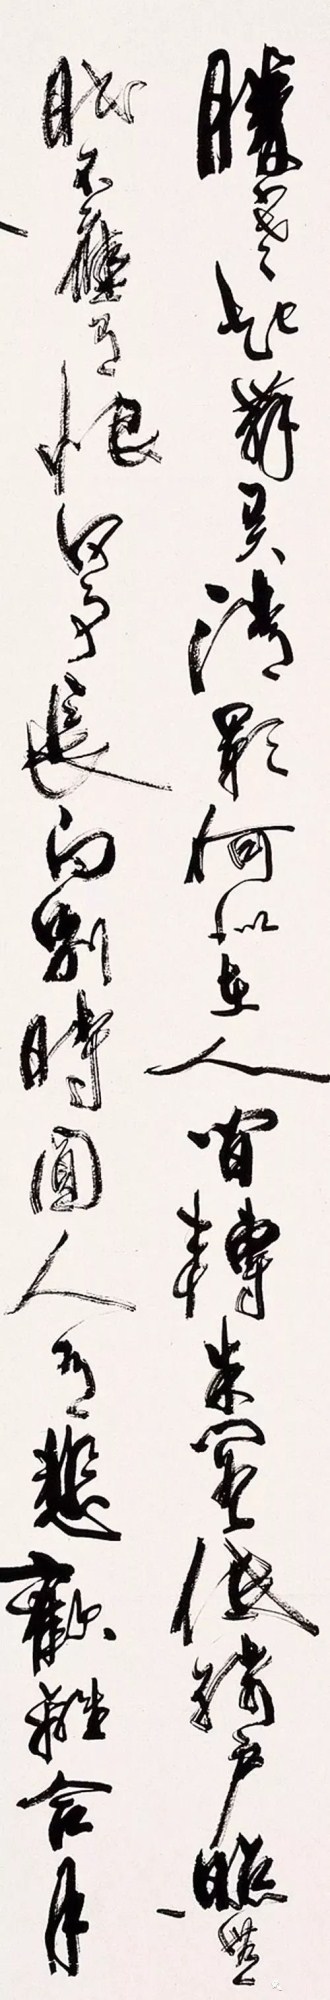 勝寒起舞弄清影何似在人間轉朱閣低綺戶照無
眠不應有恨何事長向別時圓人有悲歡離合月